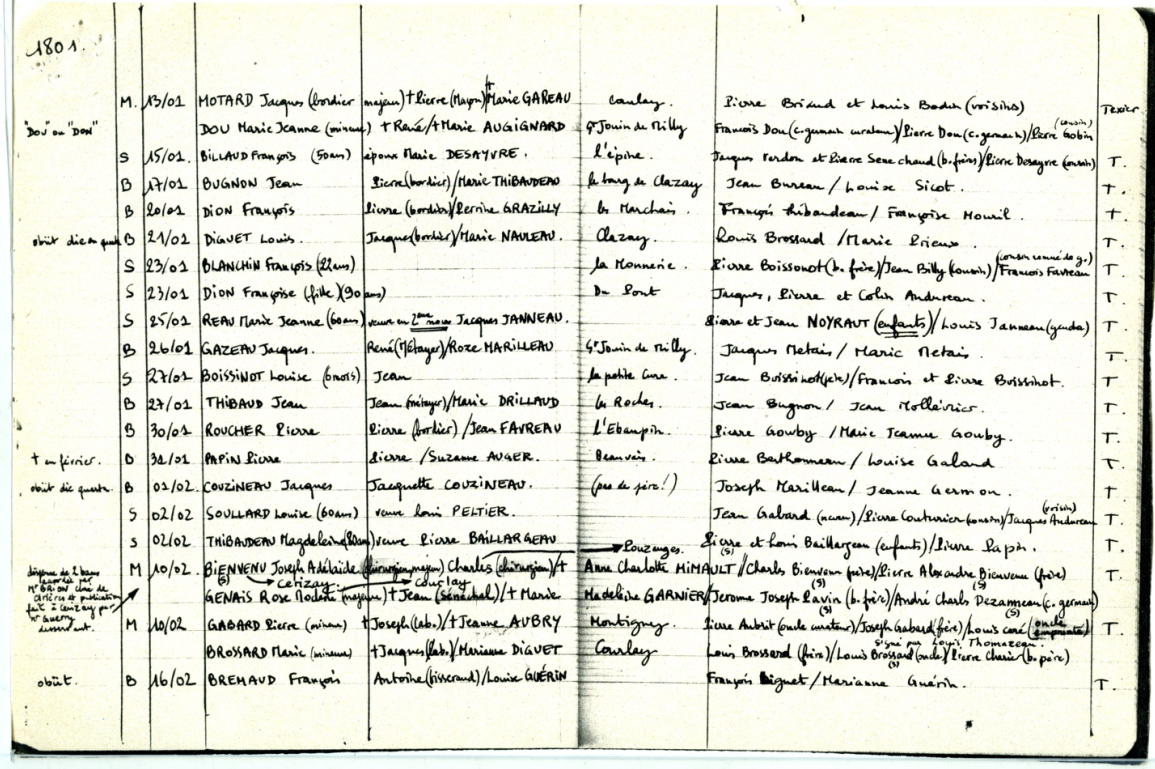 1801.
M. 13/01 MOTARD Jacques (bordier majeur) + Pierre (Maçon) / + Marie GAREAU Courlay. Pierre Briaud et Louis Bodin (voisins) Texier
"DOU" ou "DON" DOU Marie Jeanne (mineure) + René / + Marie AUGIGNARD St Jouin de Milly François Dou (c. germain curateur) / Pierre Dou (c. germain) / Pierre Gobin (cousin)
S 15/01. BILLAUD François (50ans) époux Marie DESAYVRE. l'épine. Jacques Verdon et Pierre Senechaud (b. frères) / Pierre Desayvre (cousin) T.
B 17/01 BUGNON Jean Pierre (bordier) / Marie THIBAUDEAU le bourg de Clazay Jean Bureau / Louise Sicot. T.
B 20/01 DION François Pierre (bordier) / Perrine GRAZILLY les Marchais. François Thibaudeau / Françoise Mouril. T
obiit die quarta B 21/01 DIGUET Louis. Jacques (bordier) / Marie NAULEAU. Clazay. Louis Brossard / Marie Prieur. T.
S 23/01 BLANCHIN François (22ans) la Monnerie. Pierre Boissonot (b. frère) / Jean Billy (cousin) / François Favreau (cousin remué de g.) T.
S 23/01 DION Françoise (fille) (90 ans) Du Pont Jacques, Pierre et Colin Andureau. T
S 25/01 REAU Marie Jeanne (60ans) veuve en 2ème noces Jacques JANNEAU. Pierre et Jean NOYRAUT (enfants) / Louis Janneau (gendre) T.
B 26/01 GAZEAU Jacques. René (Métayer) / Roze MARILLEAU St Jouin de Milly. Jacques Metais / Marie Metais. T.
S 27/01 BOISSINOT Louise (6 mois) Jean la petite Cure. Jean Boissinot (père) / François et Pierre Boissinot. T
B 27/01 THIBAUD Jean Jean (métayer) / Marie DRILLAUD les Roches. Jean Bugnon / Jean Mollévrier. T.
B 30/01 ROUCHER Pierre Pierre (bordier) / Jean FAVREAU l'Ebaupin. Pierre Gouby / Marie Jeanne Gouby. T.
+ en février. B 31/01 PAPIN Pierre Pierre / Suzanne AUGER. Beauvais. Pierre Berthonneau / Louise Galand T
obiit die quarta. B 01/02 COUZINEAU Jacques Jacquette COUZINEAU. (pas de père!) Joseph Marilleau / Jeanne Germon. T
S 02/02 SOULLARD Louise (60ans) veuve Louis PELTIER. Jean Gabard (neveu) / Pierre Couturier (cousin) / Jacques Andureau (voisin) T.
S 02/02 THIBAUDEAU Magdeleine (80ans) veuve Pierre BAILLARGEAU Pierre et Louis Baillargeau (enfants) / Pierre Papin. T.
Pouzauges.
dispense de 2 bans
M 10/02. BIENVENU Joseph Adélaïde (chirurgien, majeur) Charles (chirurgien) / + Anne Charlotte MIMAULT // Charles Bienvenu (père) / Pierre Alexandre Bienvenu (frère) T.
(S) cerizay. courlay (S) (S)
GENAIS Rose Modeste (majeure) + Jean (Sénéchal) / + Marie Madeleine GARNIER / Jerome Joseph Pavin (b. frère) / André Charles Dezanneau (c. germain)
M 10/02 GABARD Pierre (mineur) + Joseph (lab.) / + Jeanne AUBRY Montigny. Pierre Aubrit (oncle curateur) / Joseph Gabard (frère) / Louis coré (oncle emprunté) T.
signé par Louis Thomazeau.
BROSSARD Marie (mineure) + Jacques (lab.) / Marianne DIGUET Courlay Louis Brossard (frère) / Louis Brossard (oncle) / Pierre Charrier (b. père)
obiit. B 16/02 BREMAUD François Antoine (tisserand) / Louise GUÉRIN François Biguet / Marianne Guérin. T.